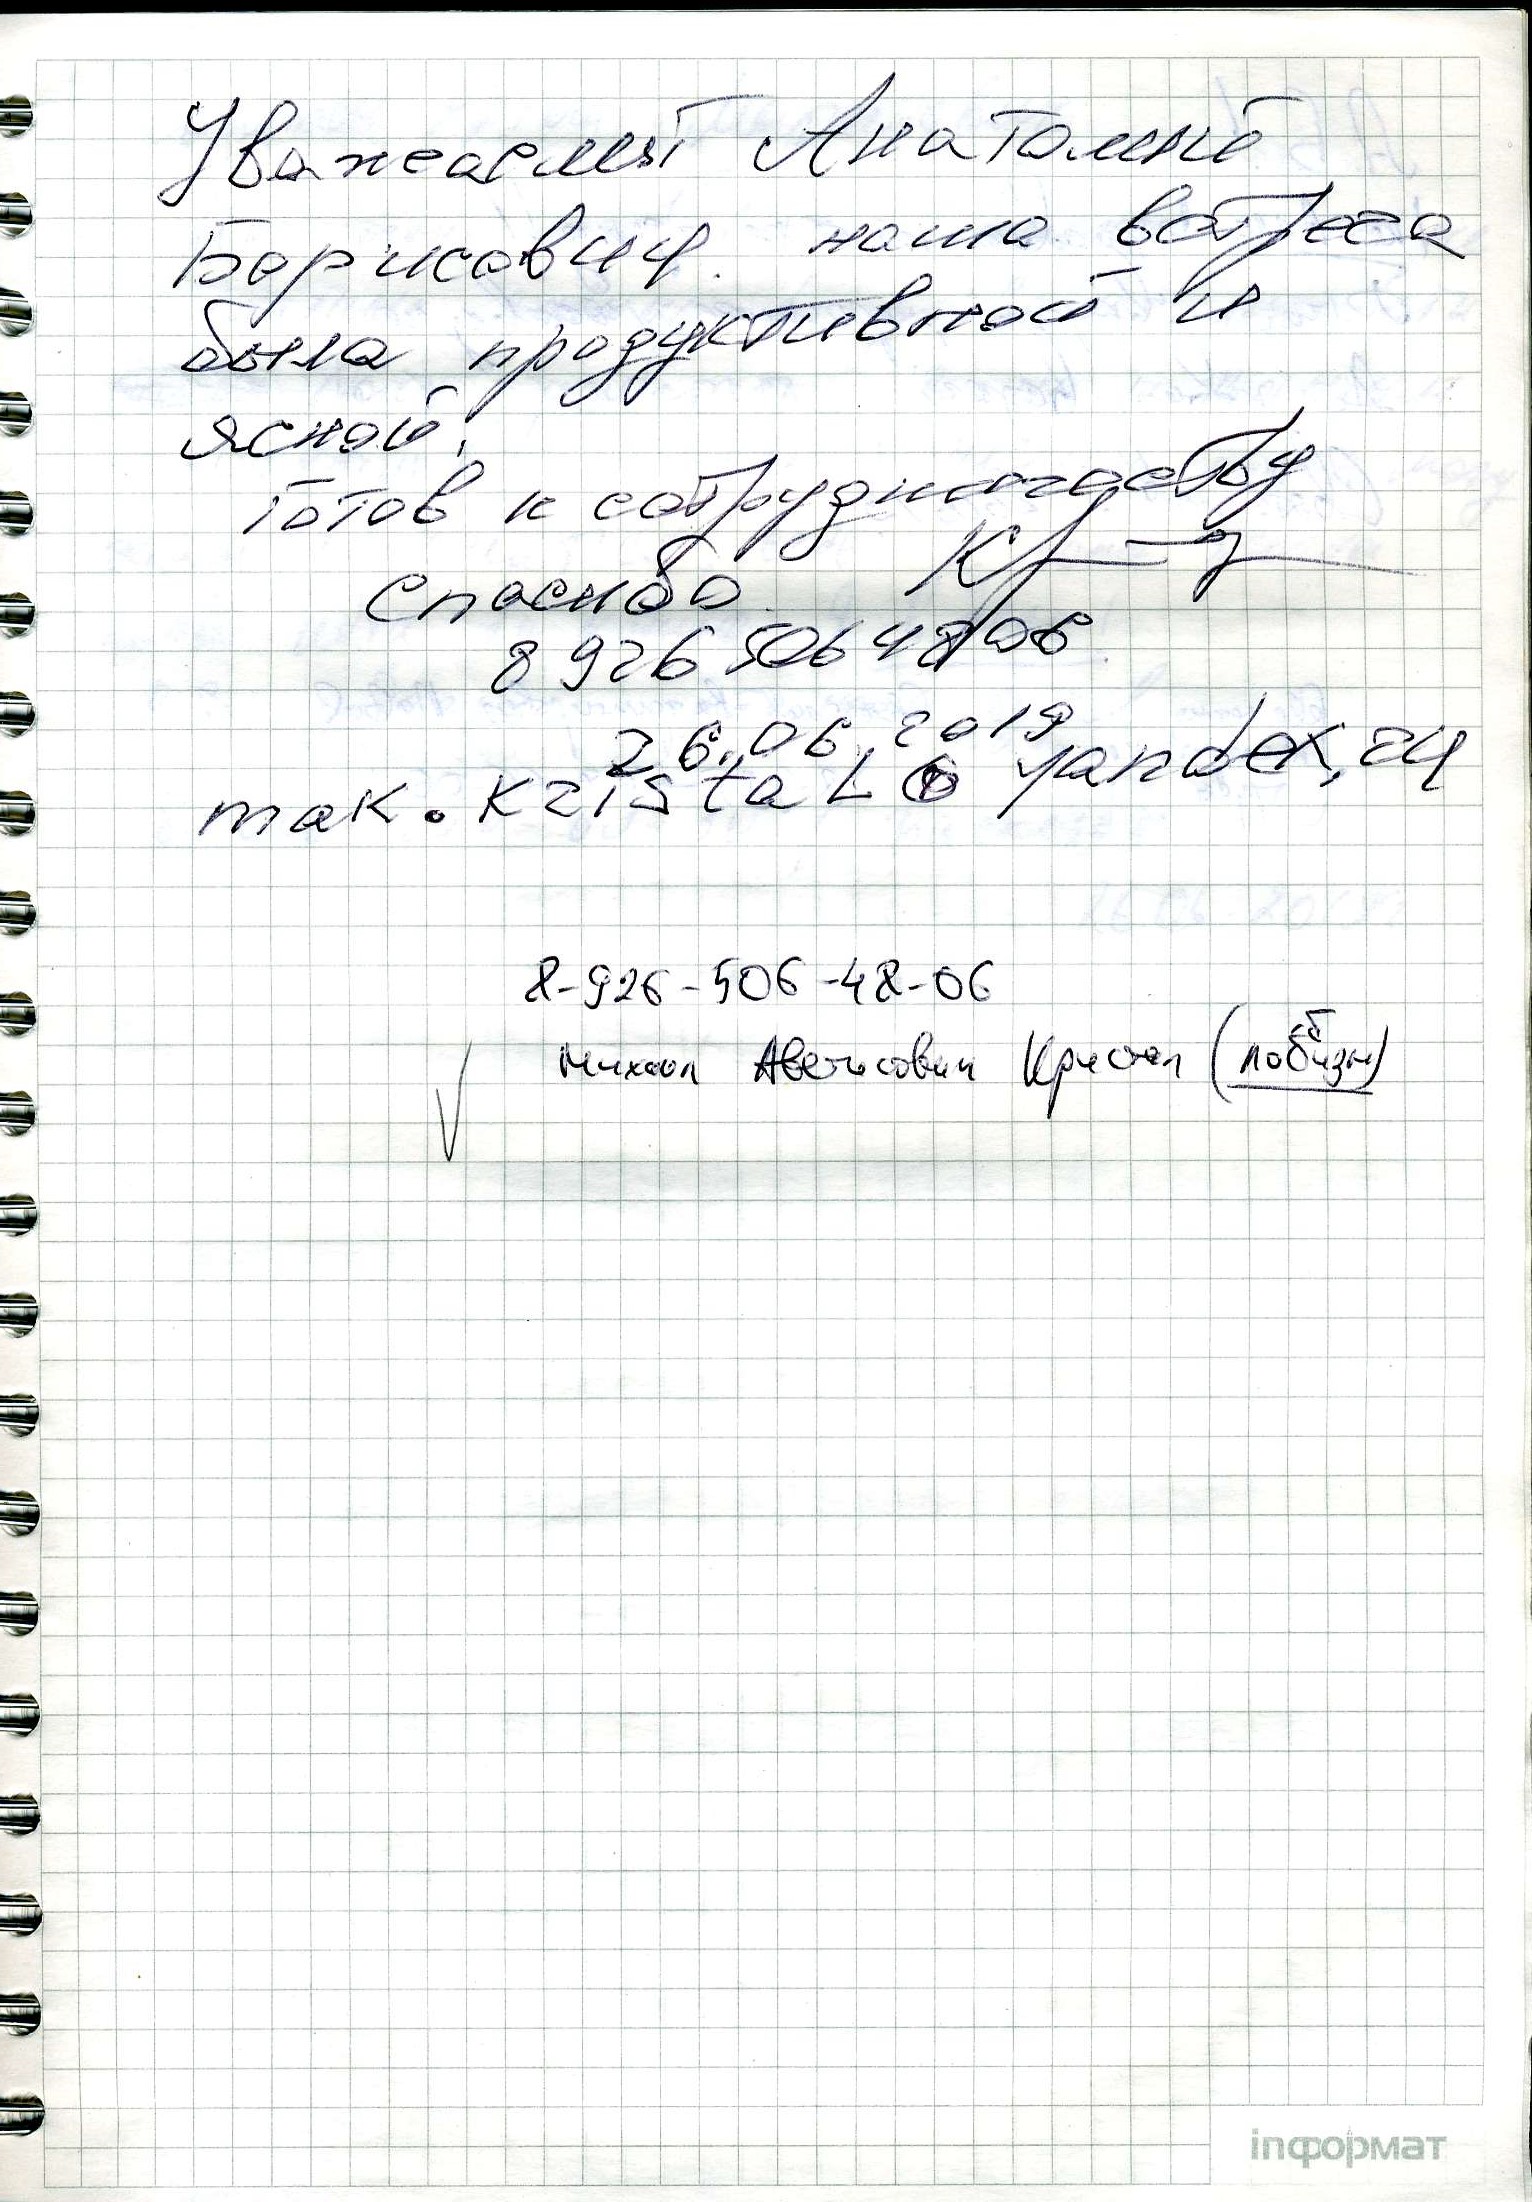 Уважаемый Анатолий
Борисович. наша встреча
была продуктивной и
ясной.
Готов к сотрудничеству
спасибо.
8 926 506 48 06.
26.06.2019
mak.kristal@yandex.ru
8-926-506-48-06
Михаил Аветисович Кристал (лобби
informat